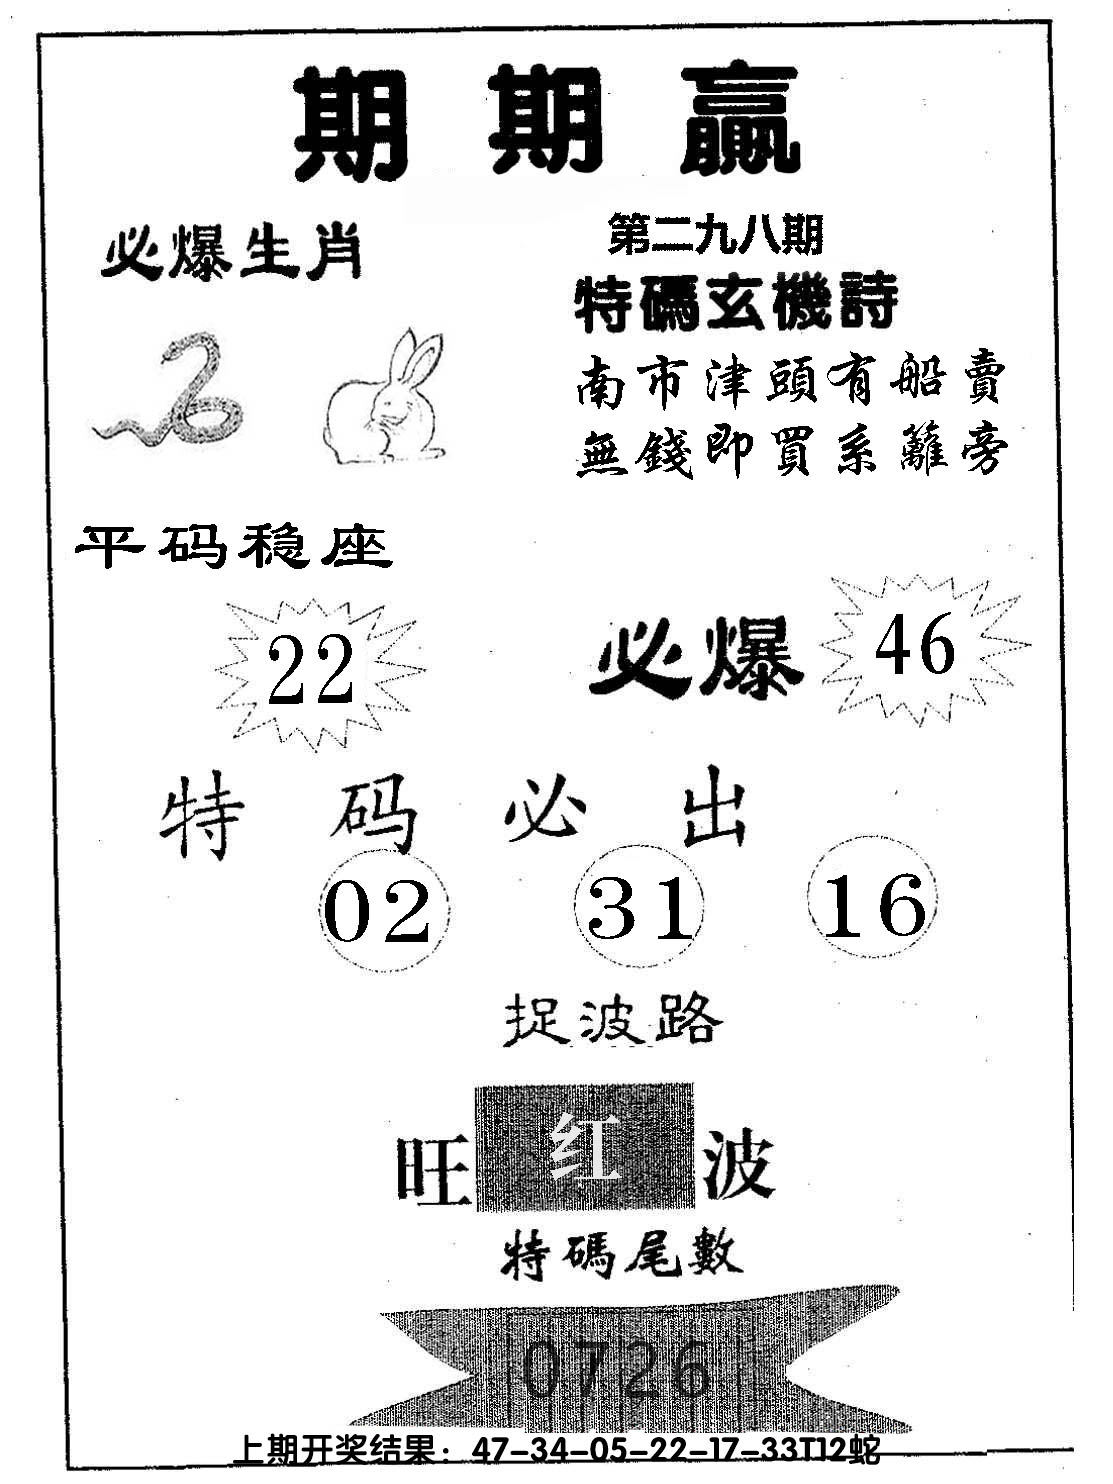 期期赢
必爆生肖
第二九八期
特碼玄機詩
南市津頭有船賣
無錢即買系籬旁
平码稳座
22
必爆
46
特码必出
02 31 16
捉波路
旺红波
特碼尾數
0726
上期开奖结果：47-34-05-22-17-33T12蛇